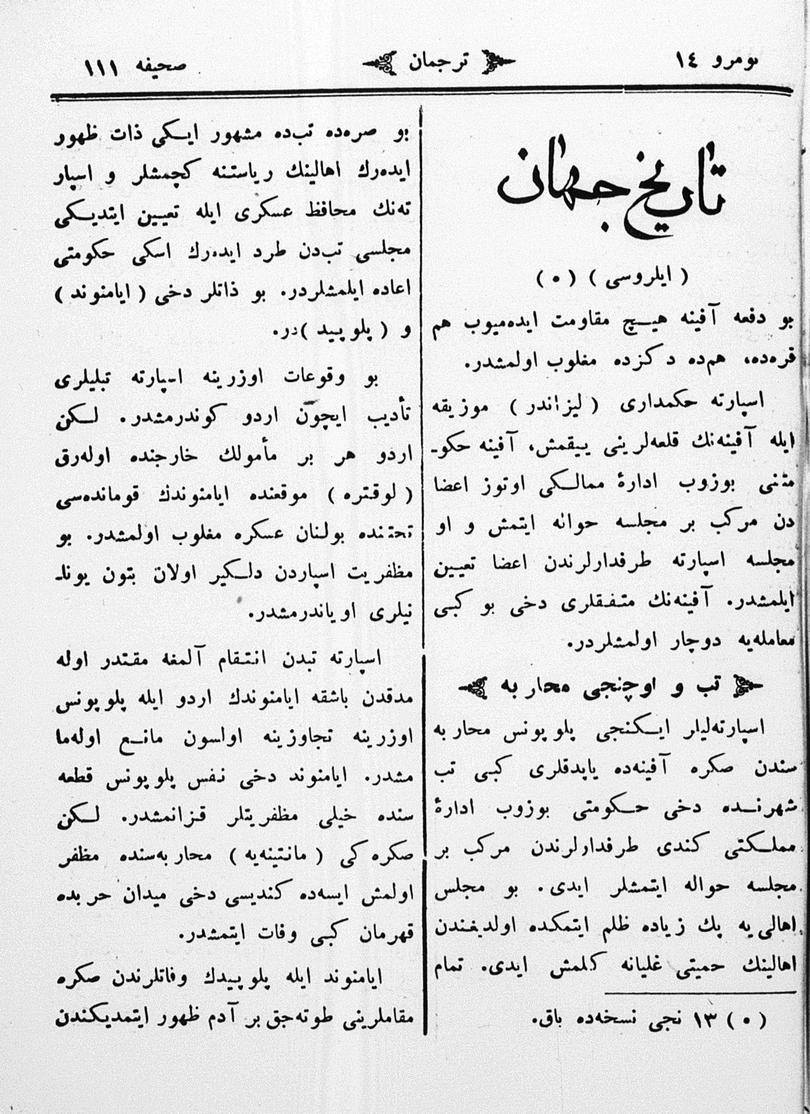 نومرو ١٤
ترجمان
صحيفه ١١١
تاريخ جهان
( ايلروسی ) (٥)
بو دفعه آفينه هيـچ مقاومت ايده‌ميوب هم
قره‌ده، هم‌ده دكزده مغلوب اولمشدر.
اسپارته حكمداری ( ليزاندر ) موزيقه
ايله آفينه‌نك قلعه‌لرينی ييقمش، آفينه حكو‌ـ
متنی بوزوب ادارۀ ممالـكی اوتوز اعضا
دن مركب بر مجلسه حواله ايتمش و او
مجلسه اسپارته طرفدارلرندن اعضا تعيين
ايلمشدر. آفينه‌نك متفقلری دخی بو كبی
معامله‌يه دوچار اولمشلردر.
تب و اوچنجی محاربه
اسپارته‌ليلر ايـكنجی پلوپونس محاربه
سندن صكره آفينه‌ده ياپدقلری كبی تب
شهرنـده دخی حـكومتی بوزوب ادارۀ
مملـكتی كندی طرفدارلرندن مركب بر
مجلسه حواله ايتمشلر ايدی. بو مجلس
اهالی‌يه پك زياده ظلم ايتمكده اولديغندن
اهالينك حميتی غليانه كلمش ايدی. تمام
(٥) ١٣ نجی نسخه‌ده باق.
بو صره‌ده تب‌ده مشهور ايـكی ذات ظهور
ايده‌رك اهالينك رياستنه كچمشلر و اسپار
ته‌نك محافظ عسكری ايله تعيين ايتديـكی
مجلسی تب‌دن طرد ايده‌رك اسكی حكومتی
اعاده ايلمشلردر. بو ذاتلر دخی ( اپامنوند )
و ( پلوپيد )در.
بو وقوعات اوزرينه اسپارته تبليلری
تأديب ايچون اردو كوندرمشدر. لـكن
اردو هر بر مأمولك خارجنده اوله‌رق
( لوقتره ) موقعنده اپامنوندك قومانده‌سی
تحتنده بولنان عسكره مغلوب اولمشدر. بو
مظفريت اسپاردن دلـكير اولان بتون يونا‌ـ
نيلری اوياندرمشدر.
اسپارته تبدن انتقام آلمغه مقتدر اوله
مدقدن باشقه اپامنوندك اردو ايله پلوپونس
اوزرينه تجاوزينه اولسون مانـع اوله‌ما
مشدر. اپامنوند دخی نفس پلوپونس قطعه
سنده خيلی مظفريتلر قـزانمشدر. لـكن
صكره‌كی ( مانتينه‌يه ) محاربه‌سنده مظفر
اولمش ايسه‌ده كنديسی دخی ميدان حربده
قهرمان كبی وفات ايتمشدر.
اپامنوند ايله پلوپيدك وفاتلرندن صكره
مقاملرينی طوته‌جق بر آدم ظهور ايتمديكندن